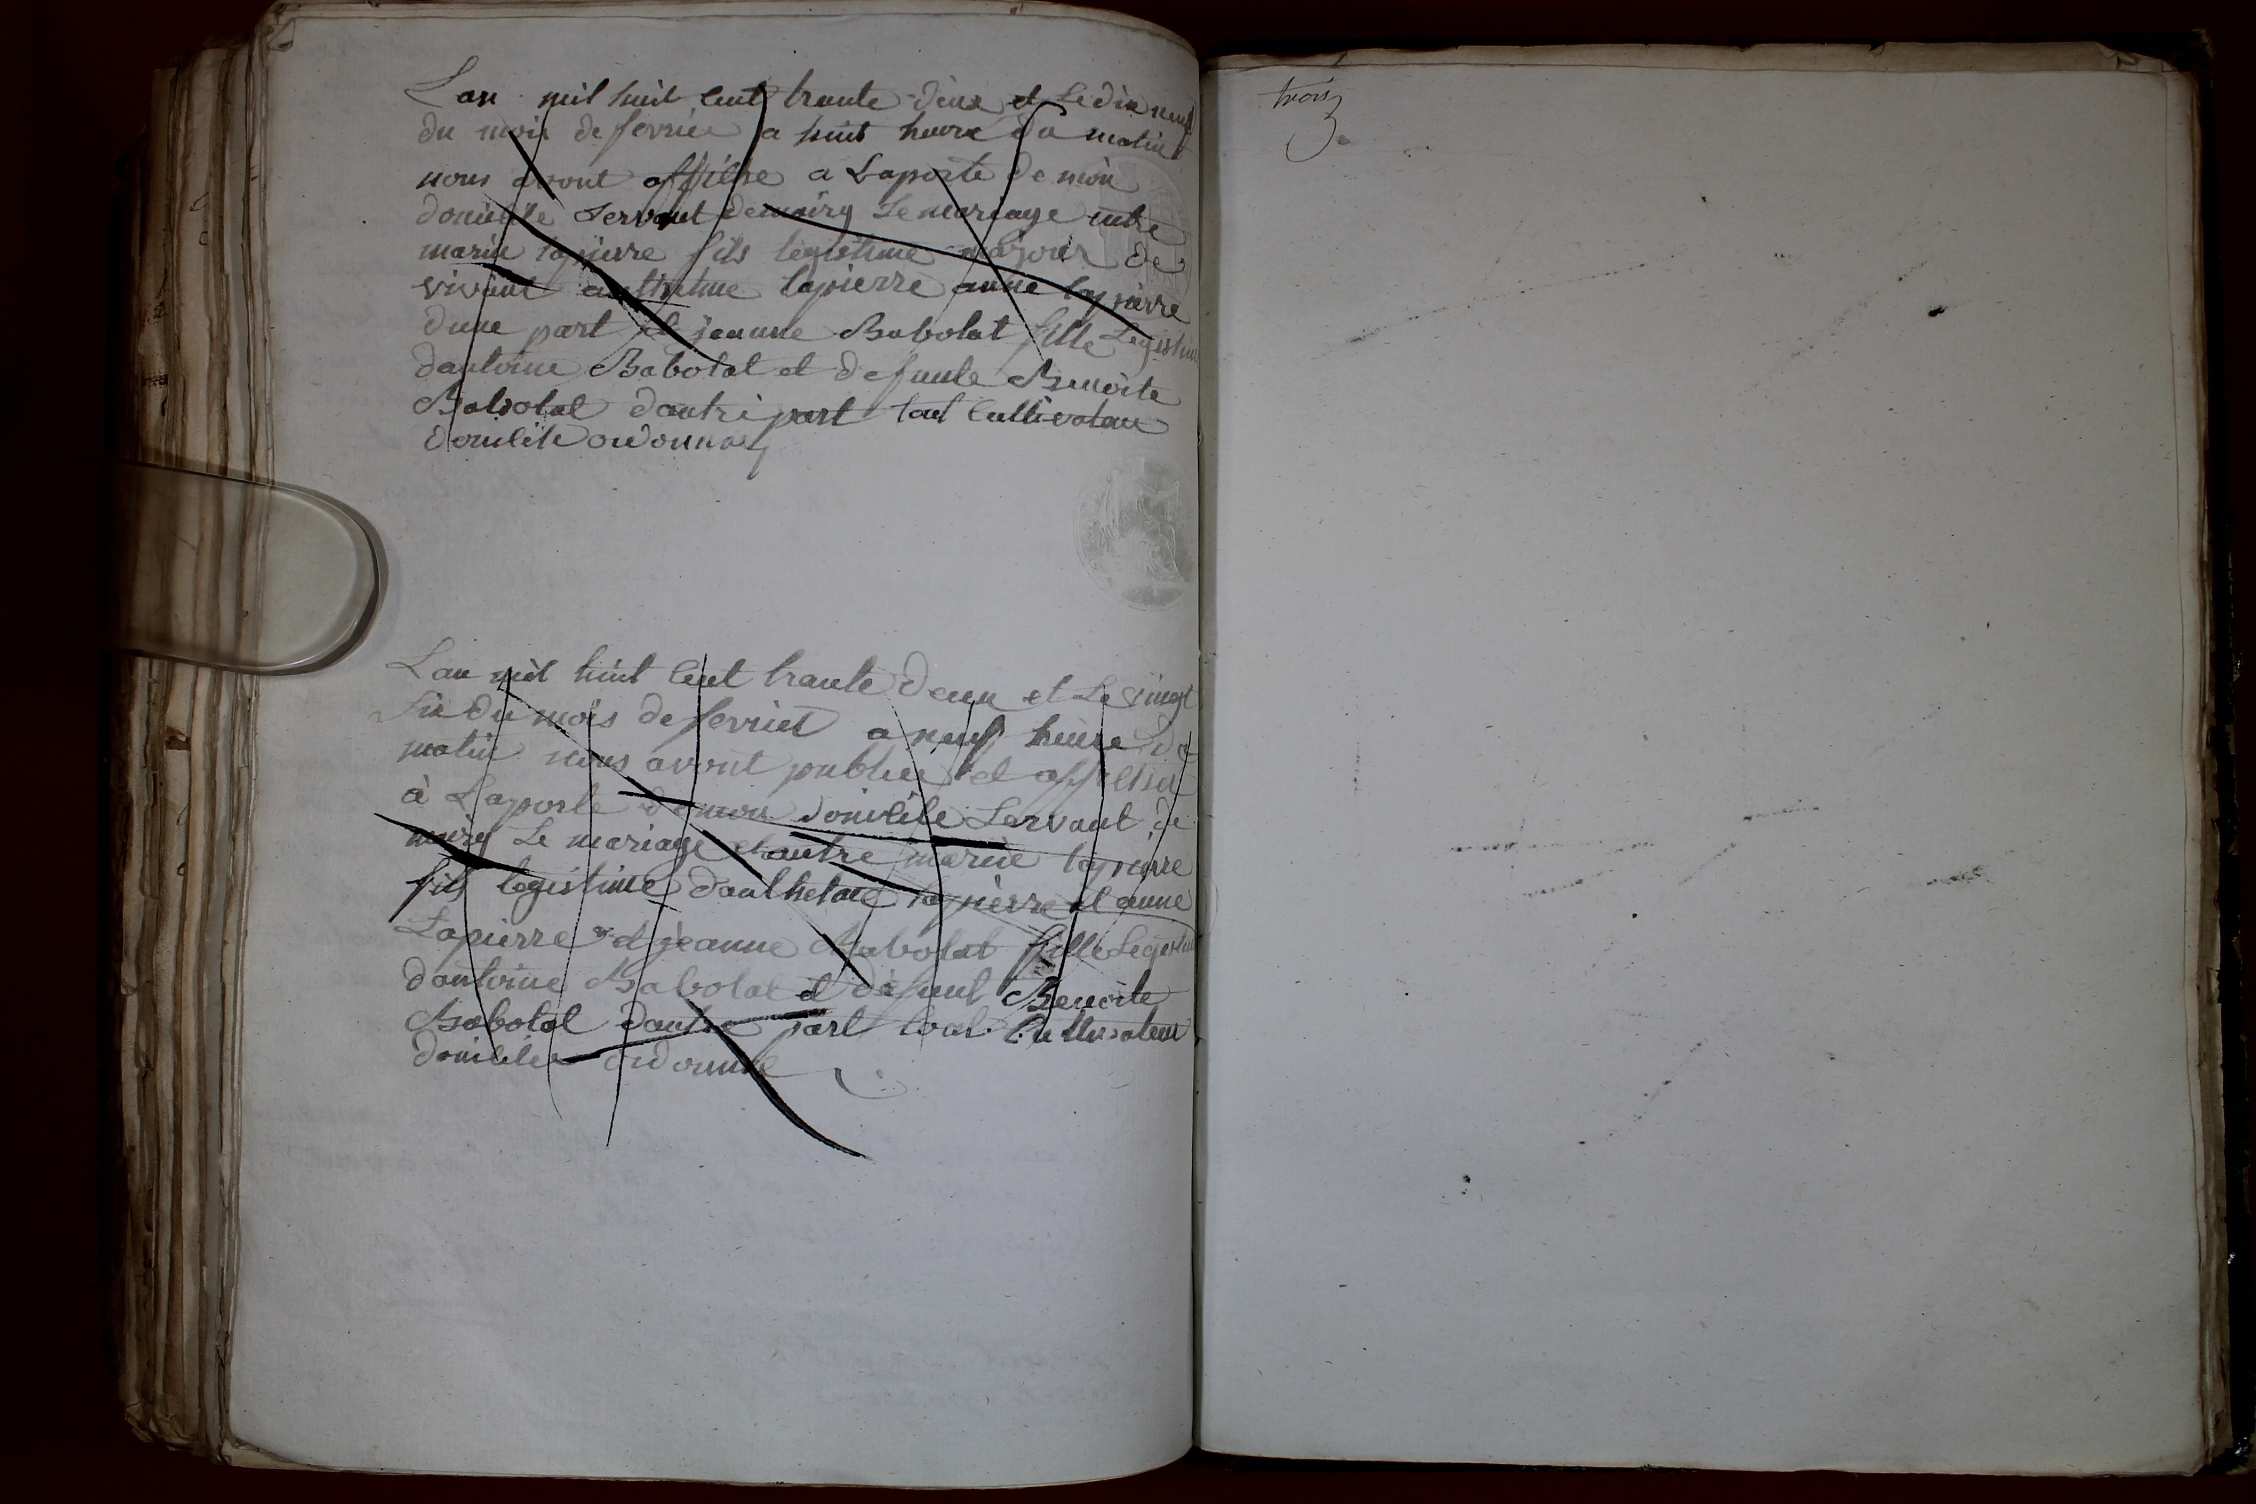 Lan mil huit Cent trante deux et Le dix neuf
du mois de fevrier a huit heure du matin
nous avont affiche a Laporte de mon
domicile servant demairy Le mariage entre
marie lapierre fils legistime majour de
vivant anthelme lapierre anne lapierre
dune part et jeanne Babolat fille Legistime
dantoine Babolat et defunte Benoite
Babolat dautre part tout Cultivateur
domicile ordonnas
Lan mil huit Cent trante deux et Le vingt
six du mois de fevrier a neuf heure du
matin nous avont publiee et affiche
à Laporte demon domicile Servant de
mairy Le mariage entre marie lapierre
fils legistime danthelme lapierre et anne
Lapierre et jeanne Babolat fille Legistime
dantoine Babolat et defunt Benoite
Babolat dautre part tout Cultivateur
domicilie ordonnas
trois